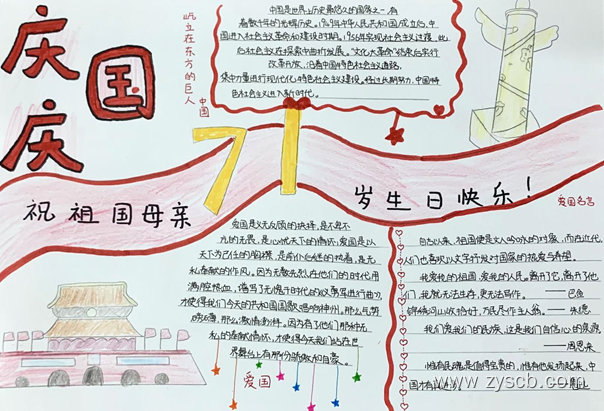 庆
国
庆
屹立在东方的巨人
中国
中国是世界上历史最悠久的国家之一,有
着数千年的光辉历史。1949年中华人民共和国成立后,中
国进入社会主义革命和建设时期。1956年实现社会主义过渡,此
后社会主义在探索中曲折发展。"文化大革命"结束后实行
改革开放,沿着中国特色社会主义道路,
集中力量进行现代化特色社会主义建设。经过长期努力,中国特
色社会主义进入新时代。
祝祖国母亲
71
岁生日快乐!
爱国名言
爱国是义无反顾的抉择,是不卑不
亢的无畏,是心忧天下的情怀,爱国是以
天下为己任的胸襟,是前仆后继的执着,是无
私奉献的作风。因为无数先烈在他们的时代用
满腔热血,谱写了无愧于时代的
才使得我们今天的共和国国歌唱响神州,那么
那么激情澎湃,因为有了他们那种无
私的奉献情怀,才使得今天我们站在世
界舞台上有那份骄傲和自豪。
爱国
自古以来,祖国便是文人吟咏的对象,而在近代,
人们也喜欢以文字抒发对国家的热爱与希望。
我爱我的祖国,爱我的人民,离开了它,离开了他
们,我就无法生存,更无法写作。——巴金
锦绣河山收拾好,万民尽作主人翁。——朱德
我们爱我们的民族,这是我们自信心的泉源
——周恩来
惟有民魂是值得宝贵的,惟有他发扬起来,中
国才有真
www.zyscb.com